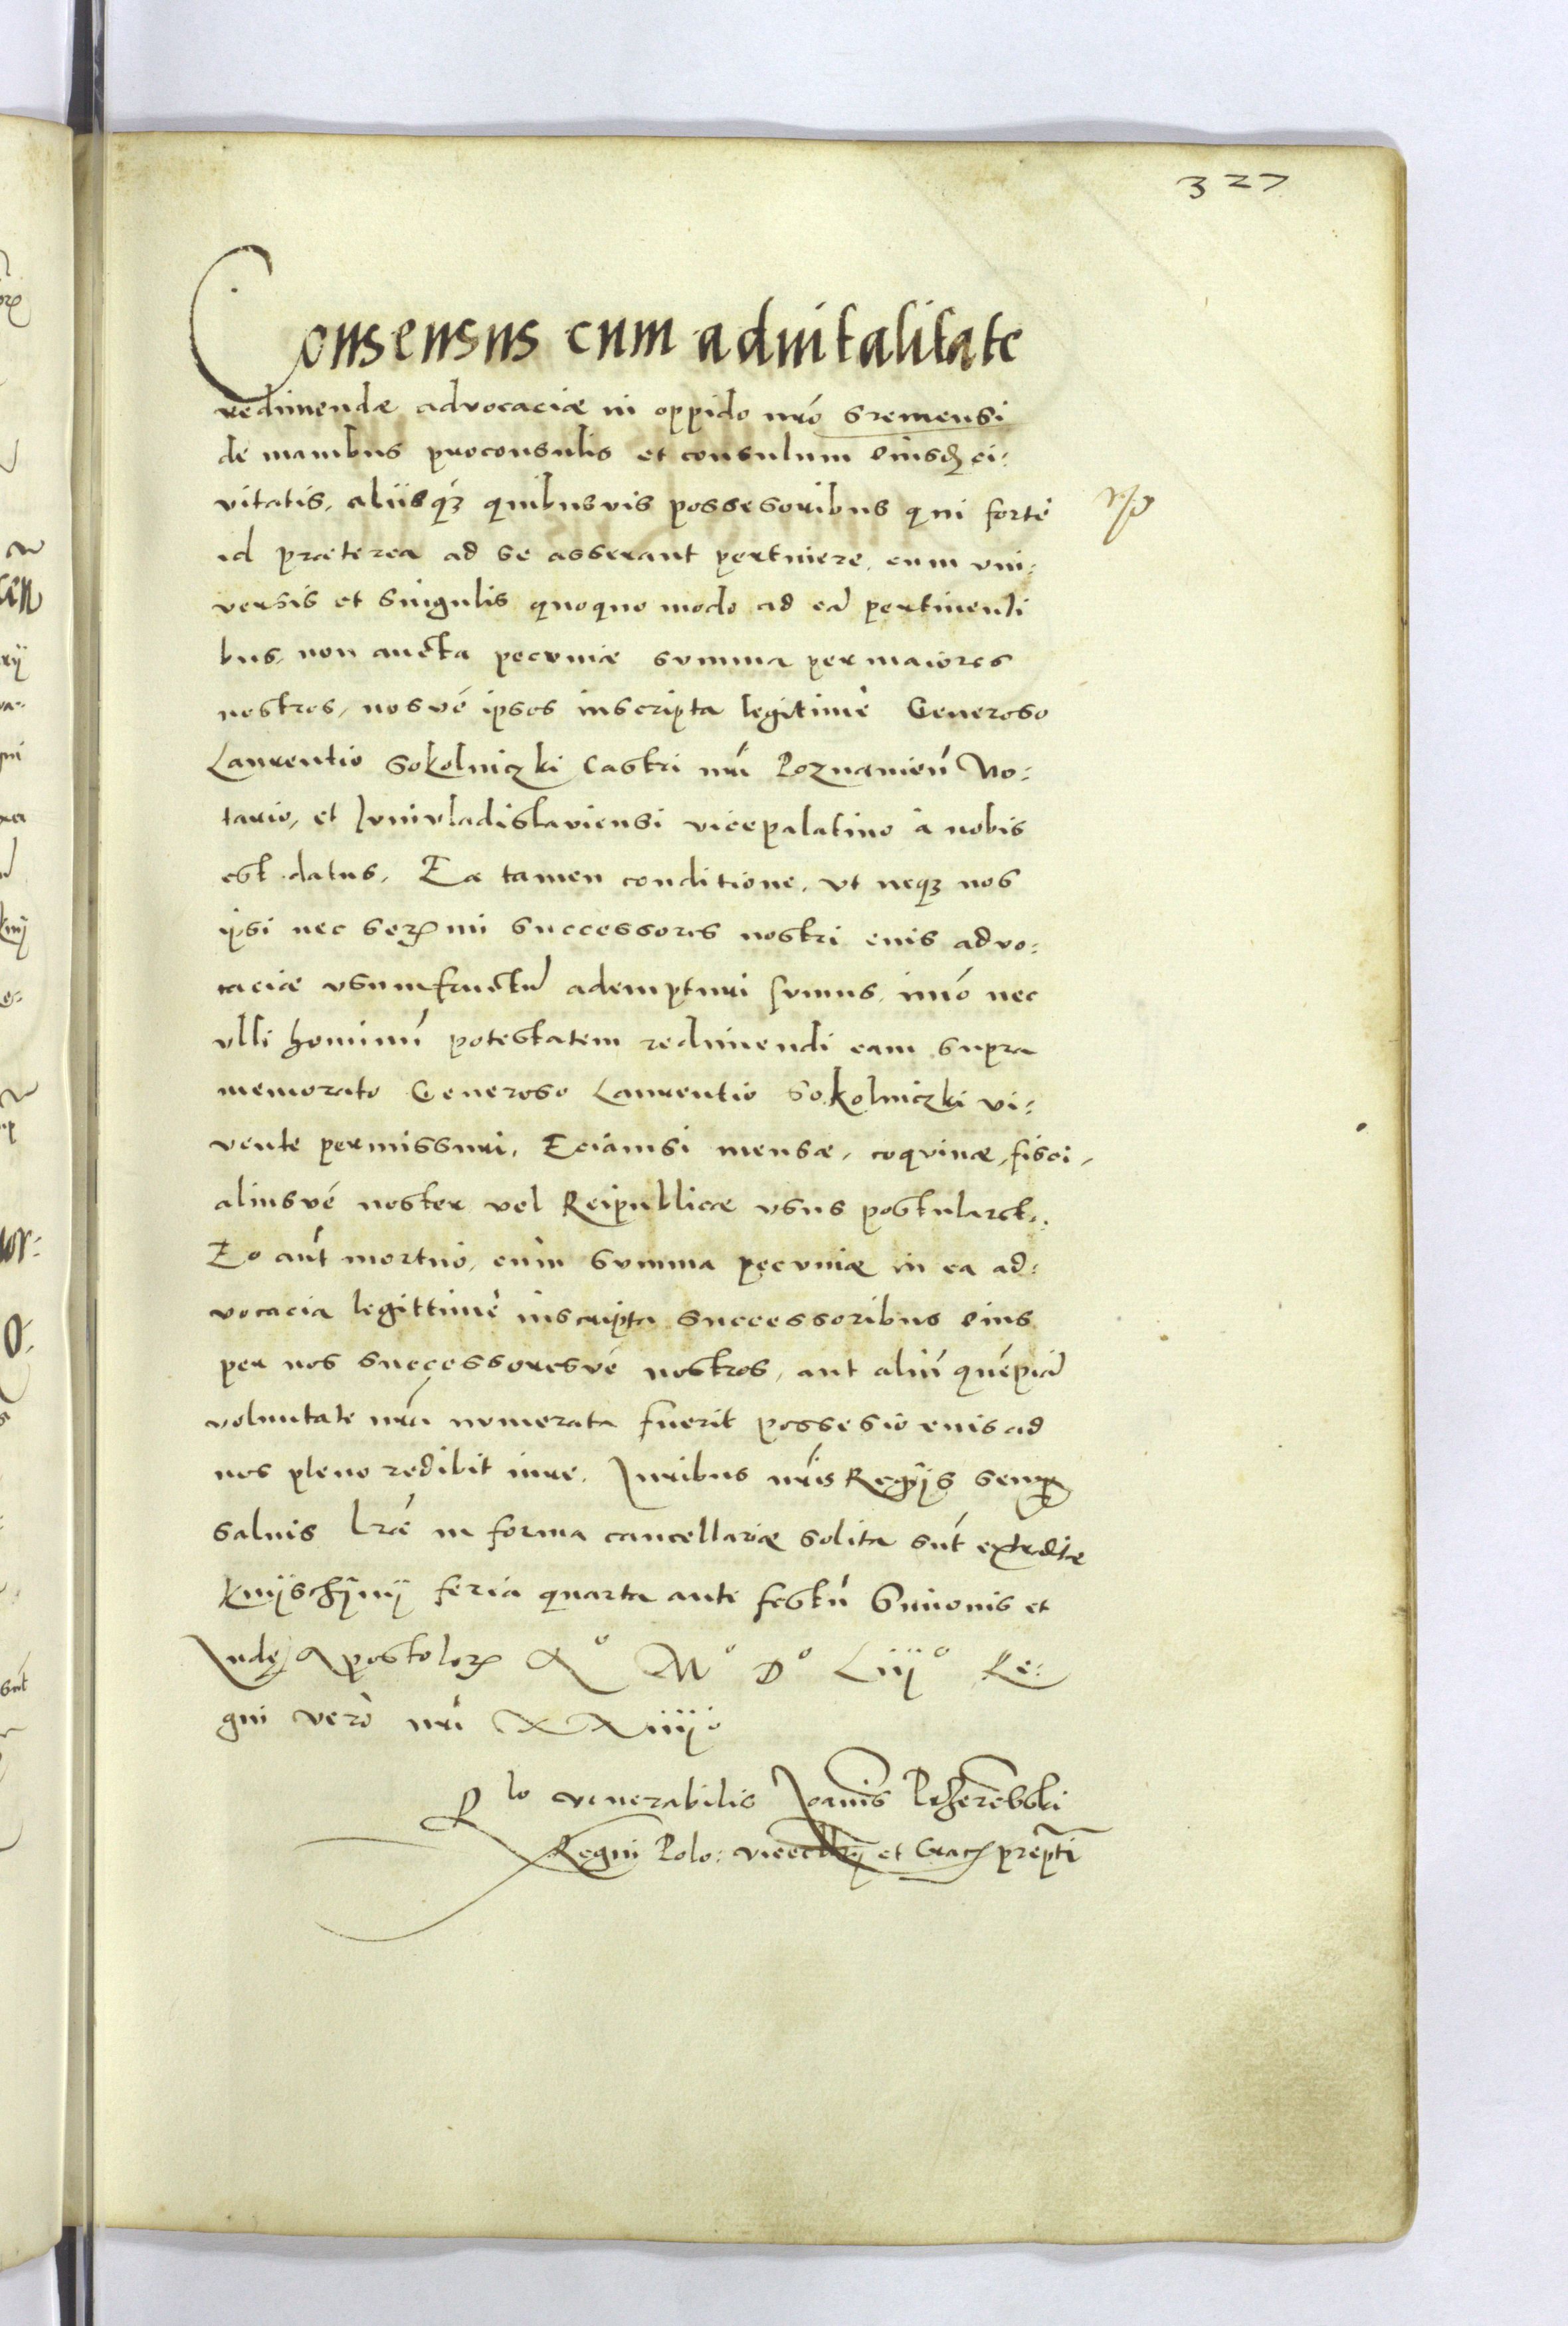 327
Consensus cum advitalitate
redimendæ advocaciæ in oppido nr̃o Sremensi
de manibus proconsulis et consulum eiusdꝫ ci:
vitatis, aliisqꝫ quibusvis possesoribus qui forte
id præterea ad se asserant pertinere, cum vni:
versis et singulis quoquo modo ad eã pertinenti
bus, non aucta pecuniæ summa per maiores
nostros, nosvé ipsos inscripta legitimè Generoso
Laurentio Sokolniczki Castri nr̃i Poznanień No:
tario, et Iuniuladislaviensi vicepalatino à nobis
est datus. Ea tamen conditione, vt neqꝫ nos
ipsi nec Serꝫmi successores nostri euis advo:
caciæ vsumfructũ adempturi sumus, imò nec
vlli hominũ potestatem redimendi eam supra
memorato Generoso Laurentio Sokolniczki vi:
vente permissuri, Eciamsi mensæ, coquinæ, fisci,
aliusvé noster vel Reipublicæ vsus postularet.
Eo aut̃ mortuo, cum summa pecuniæ in ea ad:
vocacia legittimè inscripta successoribus eius
per nos successoresvé nostros, aut aliũ quẽpiã
voluntate nr̃a numerata fuerit possesio euis ad
nos pleno redibit iure. Iuribus nr̃is Regijs semꝑ
saluis Lr̃æ in forma cancellariæ solita sũt extraditæ
Knijschijnij feria quarta ante festũ Simonis et
Iudę Apostolorꝫ Aº Mº Dº Liijº Re:
gni verò nr̃i XXiiijº
R lo venerabilis Joannis Przerembski
Regni Polo: vicecllrij et Cracꝫ prepti